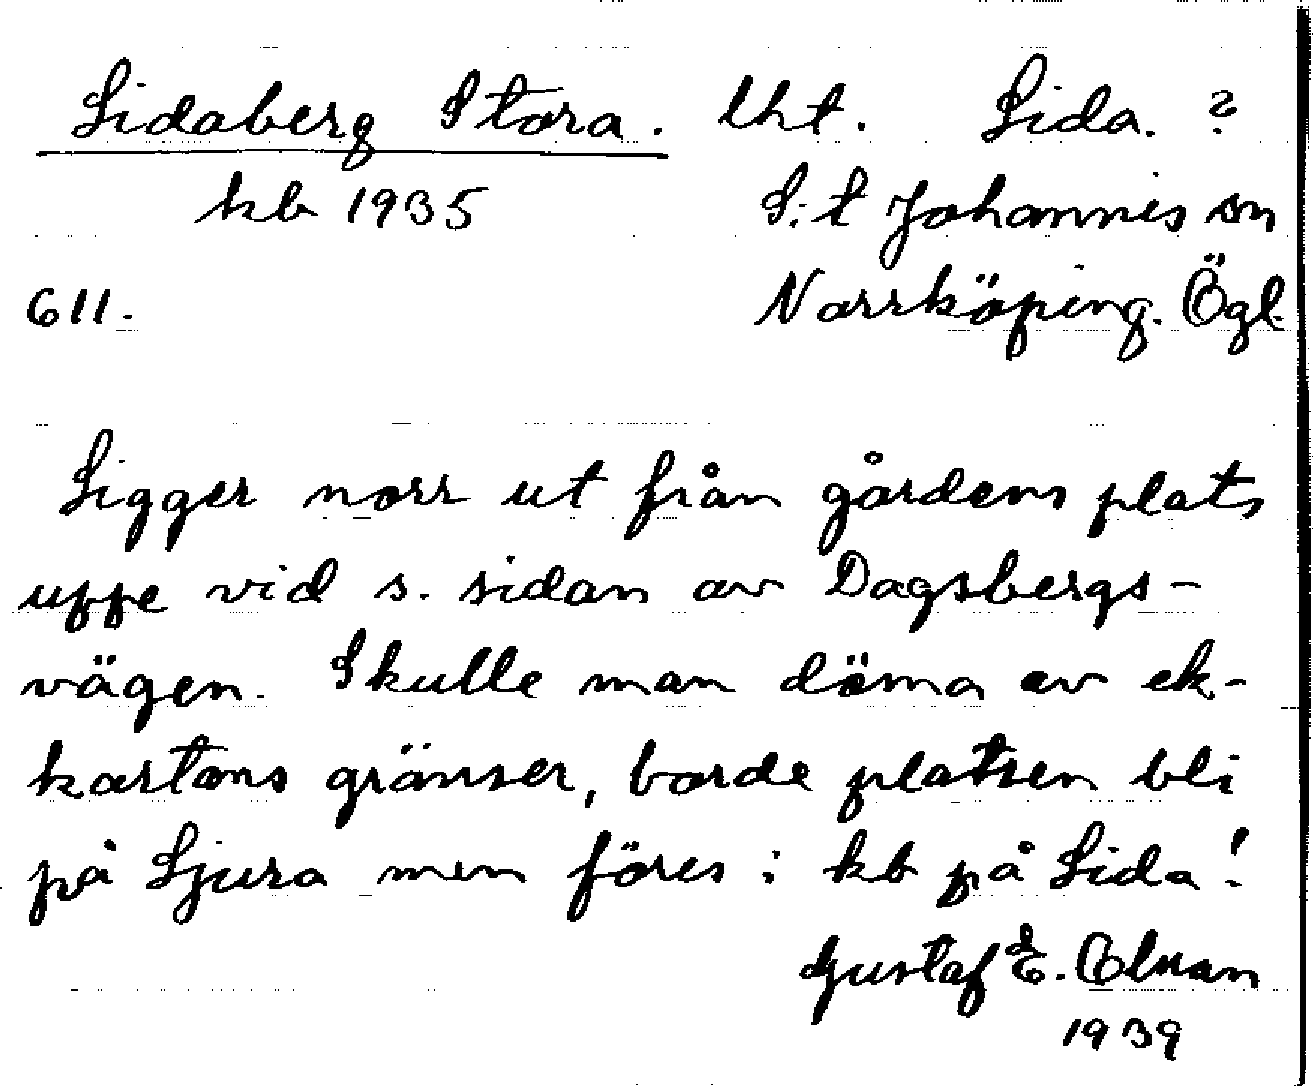 Lidaberg Stora. lht. Lida. ?
kb 1935 S:t Johannis sn
611. Norrköping. Ögl.
Ligger norr ut från gårdens plats
uppe vid s. sidan av Dagsbergs-
vägen. Skulle man döma av ek-
kartans gränser, borde platsen bli
på Ljura men föres i kb på Lida!
Gustaf E. Olsson
1939